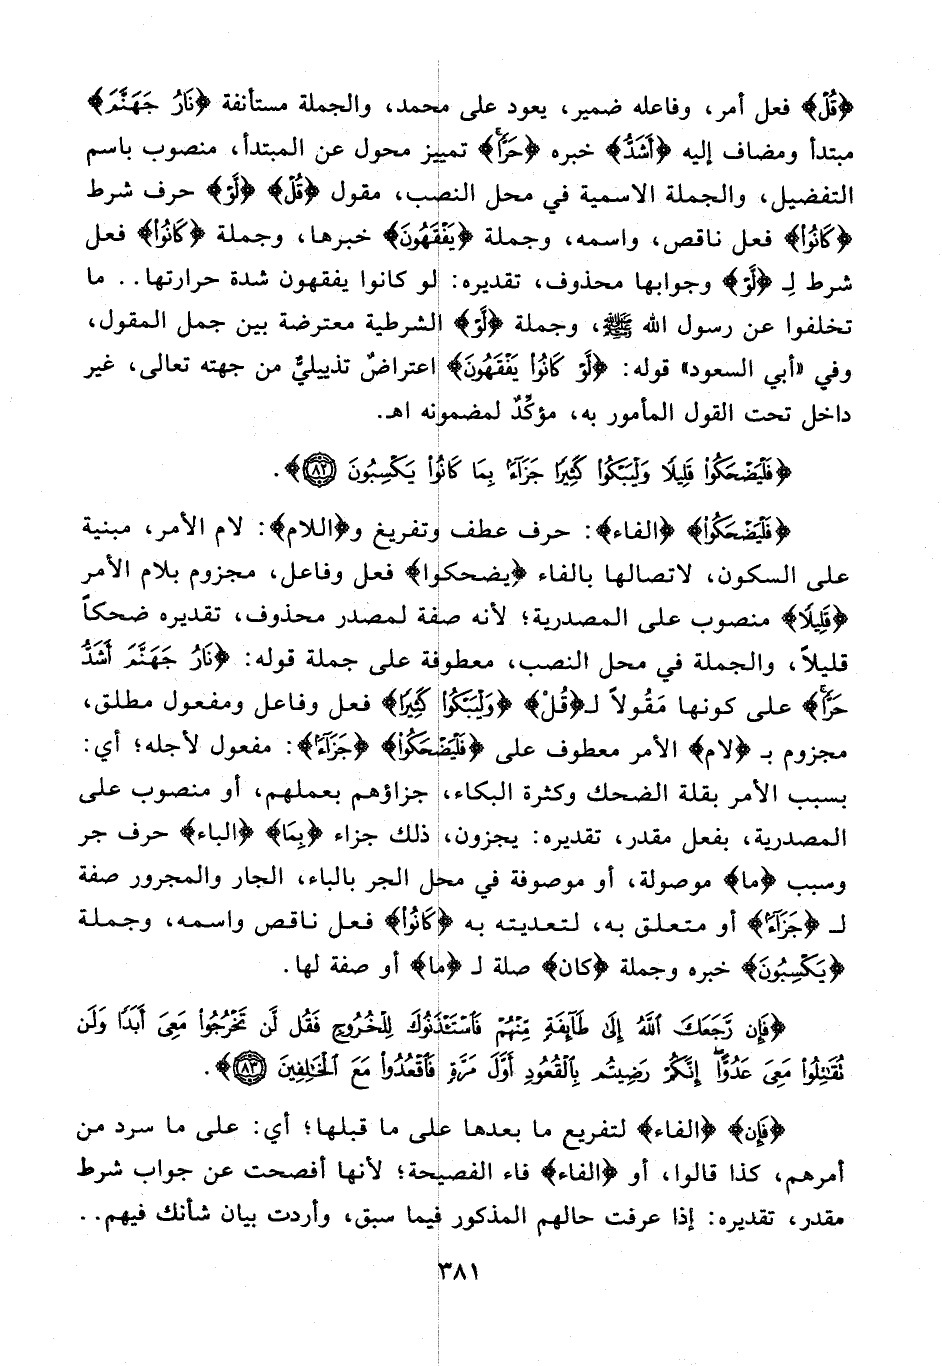 ﴿قُلْ﴾ فعل أمر، وفاعله ضمير، يعود على محمد، والجملة مستأنفة ﴿نَارُ جَهَنَّمَ﴾
مبتدأ ومضاف إليه ﴿أَشَدُّ﴾ خبره ﴿حَرًّا﴾ تمييز محول عن المبتدأ، منصوب باسم
التفضيل، والجملة الاسمية في محل النصب، مقول ﴿قُلْ﴾ ﴿لَوْ﴾ حرف شرط
﴿كَانُوا﴾ فعل ناقص، واسمه، وجملة ﴿يَفْقَهُونَ﴾ خبرها، وجملة ﴿كَانُوا﴾ فعل
شرط لِـ ﴿لَّوْ﴾ وجوابها محذوف، تقديره: لو كانوا يفقهون شدة حرارتها.. ما
تخلفوا عن رسول الله ﷺ، وجملة ﴿لَّوْ﴾ الشرطية معترضة بين جمل المقول،
وفي «أبي السعود» قوله: ﴿لَّوْ كَانُوا يَفْقَهُونَ﴾ اعتراضٌ تذييليٌّ من جهته تعالى، غير
داخل تحت القول المأمور به، مؤكِّدٌ لمضمونه اهـ.
﴿فَلْيَضْحَكُوا قَلِيلًا وَلْيَبْكُوا كَثِيرًا جَزَاءً بِمَا كَانُوا يَكْسِبُونَ ٨٢﴾.
﴿فَلْيَضْحَكُوا﴾ ﴿الفاء﴾: حرف عطف وتفريغ و﴿اللام﴾: لام الأمر، مبنية
على السكون، لاتصالها بالفاء ﴿يضحكوا﴾ فعل وفاعل، مجزوم بلام الأمر
﴿قَلِيلًا﴾ منصوب على المصدرية؛ لأنه صفة لمصدر محذوف، تقديره ضحكاً
قليلاً، والجملة في محل النصب، معطوفة على جملة قوله: ﴿نَارُ جَهَنَّمَ أَشَدُّ
حَرًّا﴾ على كونها مَقُولاً لـ﴿قُلْ﴾ ﴿وَلْيَبْكُوا كَثِيرًا﴾ فعل وفاعل ومفعول مطلق،
مجزوم بـ ﴿لام﴾ الأمر معطوف على ﴿فَلْيَضْحَكُوا﴾ ﴿جَزَاءً﴾: مفعول لأجله؛ أي:
بسبب الأمر بقلة الضحك وكثرة البكاء، جزاؤهم بعملهم، أو منصوب على
المصدرية، بفعل مقدر، تقديره: يجزون، ذلك جزاء ﴿بِمَا﴾ ﴿الباء﴾ حرف جر
وسبب ﴿ما﴾ موصولة، أو موصوفة في محل الجر بالباء، الجار والمجرور صفة
لـ ﴿جَزَاءً﴾ أو متعلق به، لتعديته به ﴿كَانُوا﴾ فعل ناقص واسمه، وجملة
﴿يَكْسِبُونَ﴾ خبره وجملة ﴿كان﴾ صلة لـ ﴿ما﴾ أو صفة لها.
﴿فَإِن رَّجَعَكَ اللَّهُ إِلَىٰ طَائِفَةٍ مِّنْهُمْ فَاسْتَأْذَنُوكَ لِلْخُرُوجِ فَقُل لَّن تَخْرُجُوا مَعِيَ أَبَدًا وَلَن
تُقَاتِلُوا مَعِيَ عَدُوًّا إِنَّكُمْ رَضِيتُم بِالْقُعُودِ أَوَّلَ مَرَّةٍ فَاقْعُدُوا مَعَ الْخَالِفِينَ ٨٣﴾.
﴿فَإِن﴾ ﴿الفاء﴾ لتفريع ما بعدها على ما قبلها؛ أي: على ما سرد من
أمرهم، كذا قالوا، أو ﴿الفاء﴾ فاء الفصيحة؛ لأنها أفصحت عن جواب شرط
مقدر، تقديره: إذا عرفت حالهم المذكور فيما سبق، وأردت بيان شأنك فيهم..
٣٨١